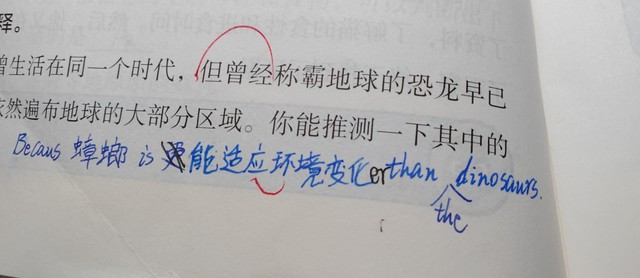 释。
曾生活在同一个时代，但曾经称霸地球的恐龙早已
依然遍布地球的大部分区域。你能推测一下其中的
Becaus 蟑螂 is 能适应环境变化er than the dinosaurs.